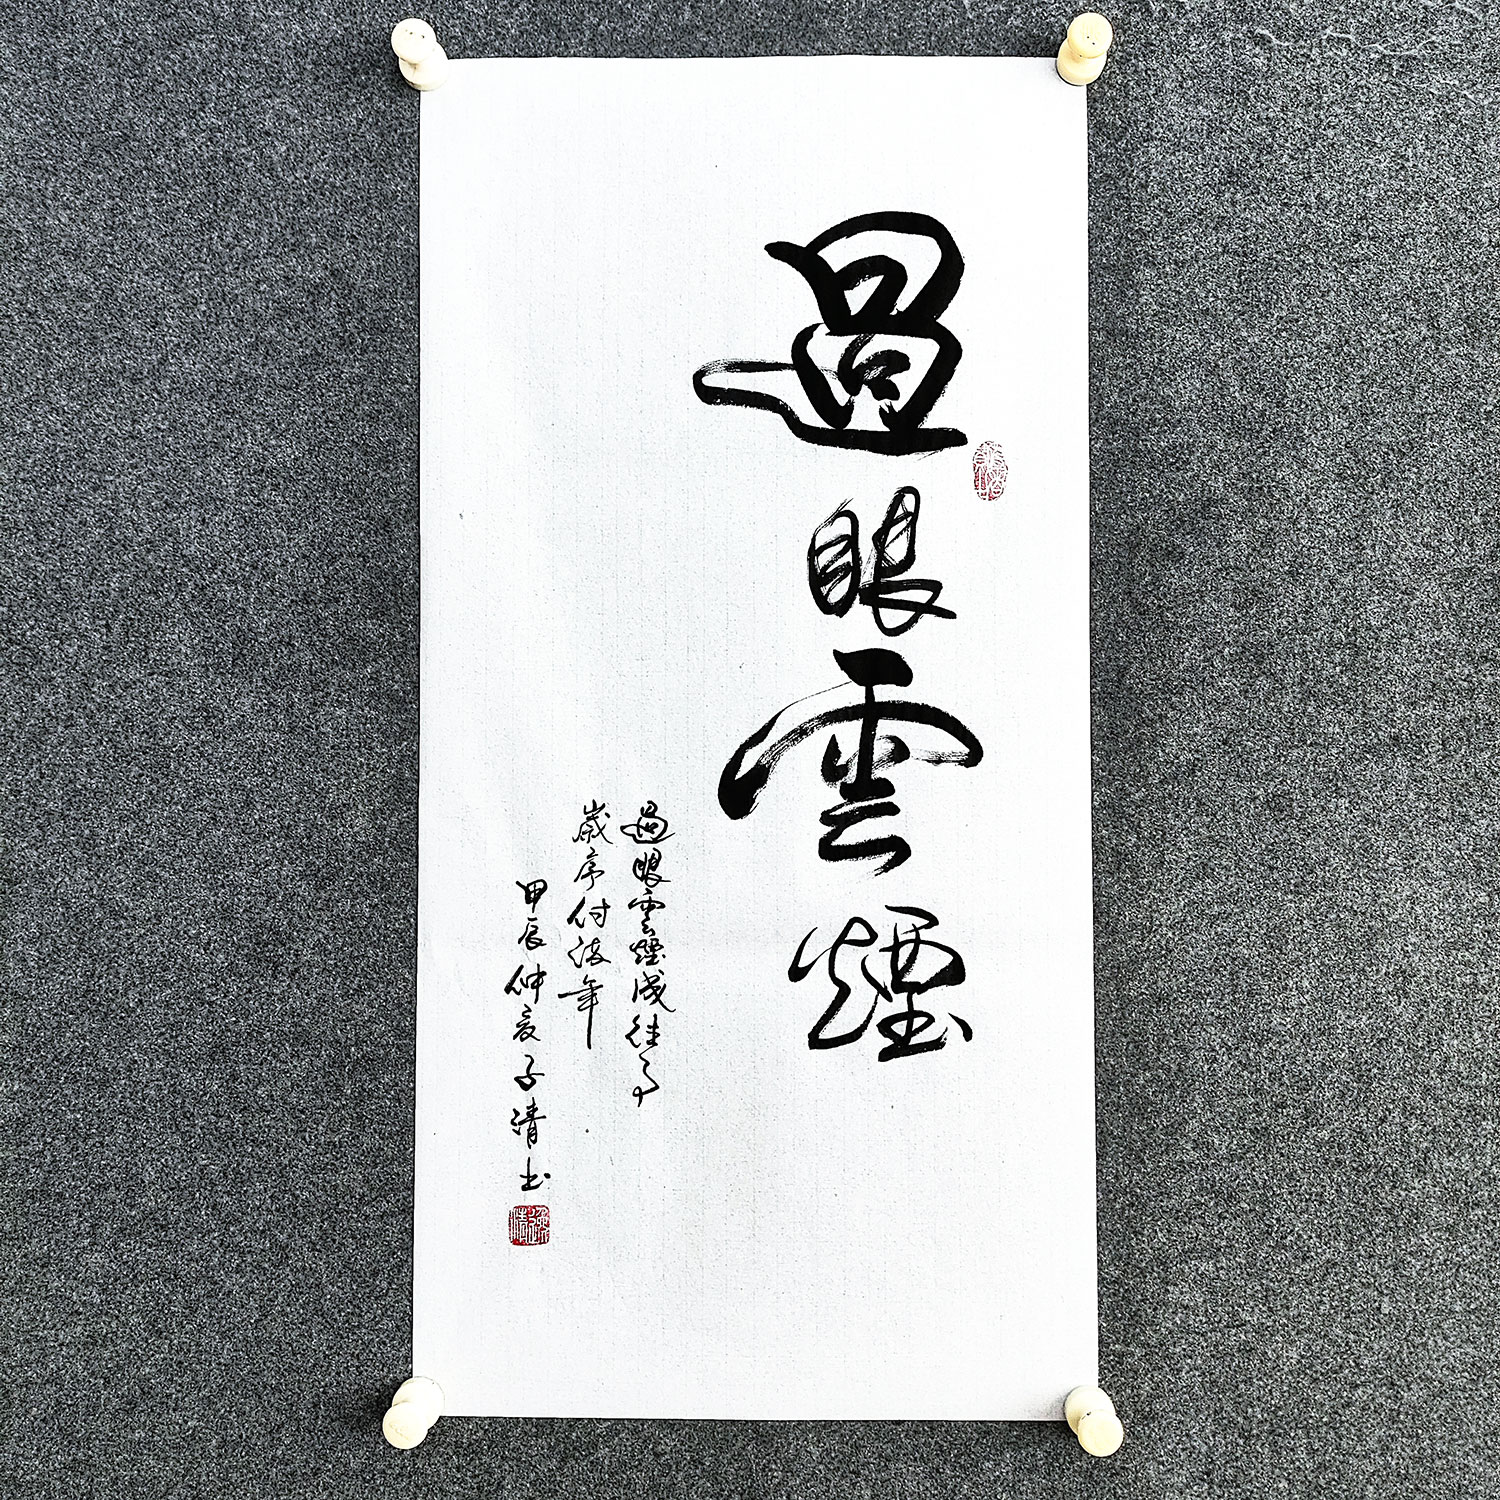 過眼雲煙
過眼雲煙成往事
歲序付流年
甲辰仲夏子清书